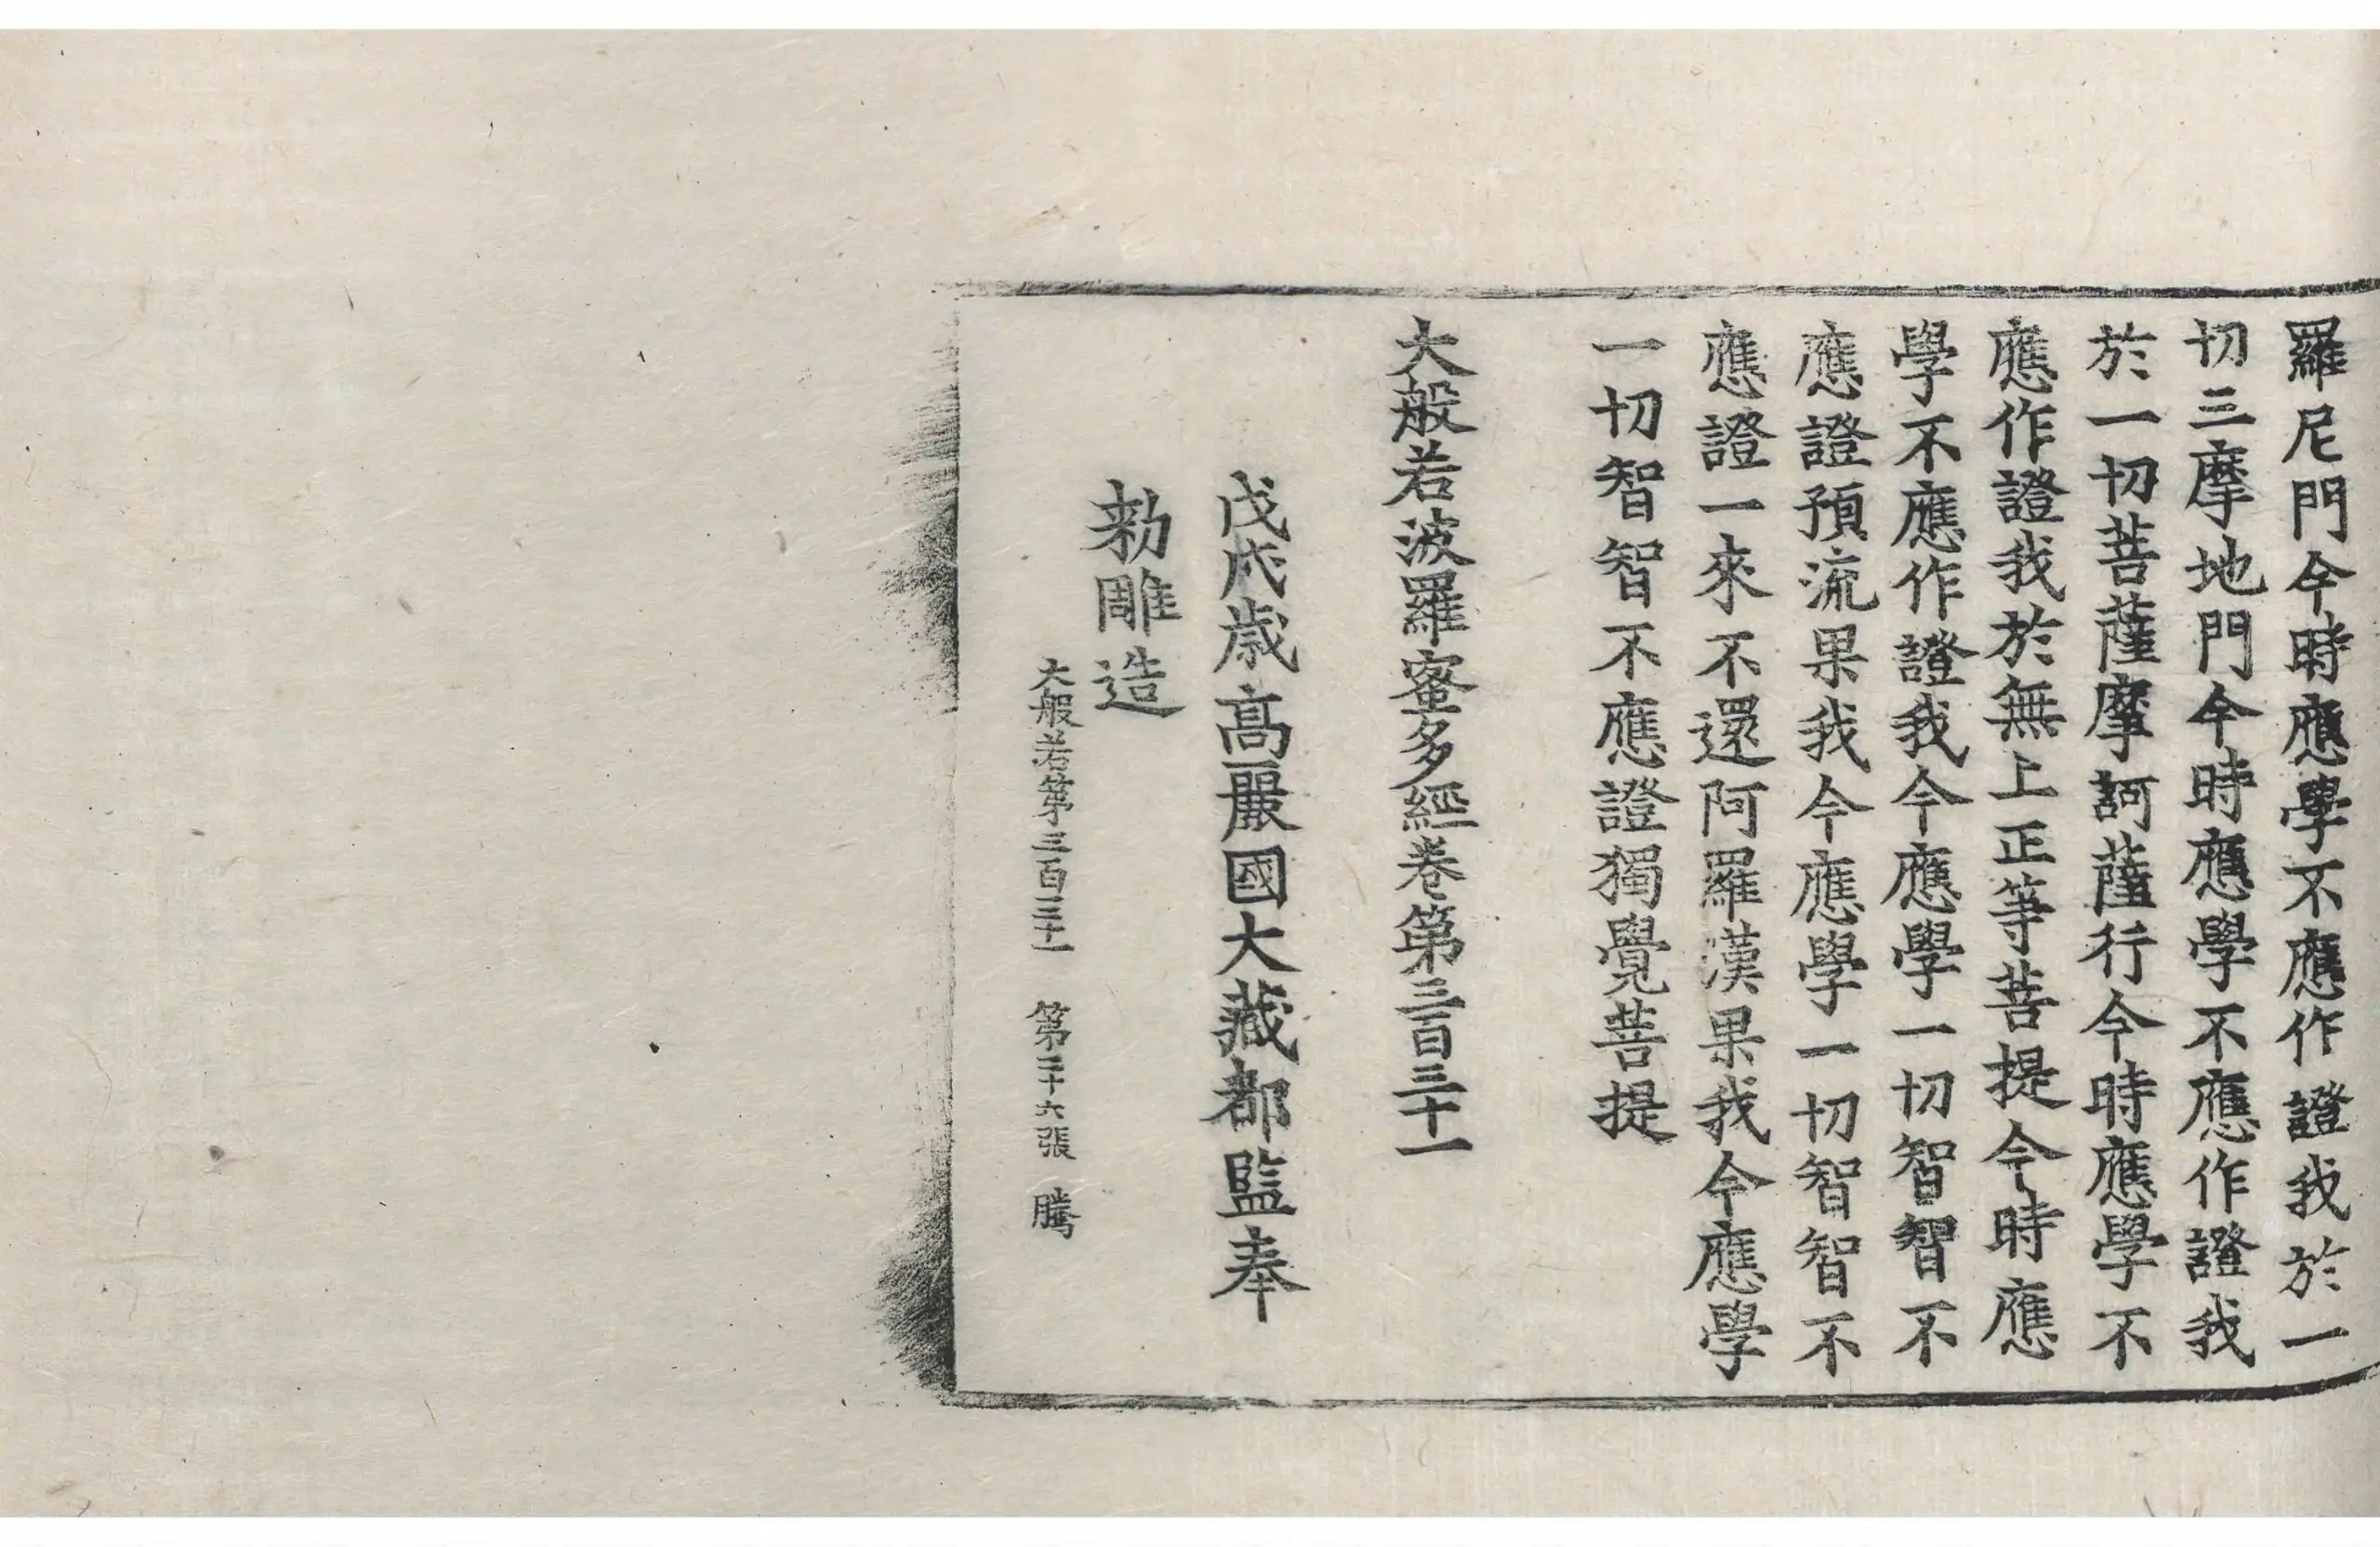 羅尼門今時應學不應作證我於一
切三摩地門今時應學不應作證我
於一切菩薩摩訶薩行今時應學不
應作證我於無上正等菩提今時應
學不應作證我今應學一切智智不
應證預流果我今應學一切智智不
應證一來不還阿羅漢果我今應學
一切智智不應證獨覺菩提
大般若波羅蜜多經卷第三百三十一
戊戌歲高麗國大藏都監奉
勑雕造
大般若第三百三十一 第二十六張 騰